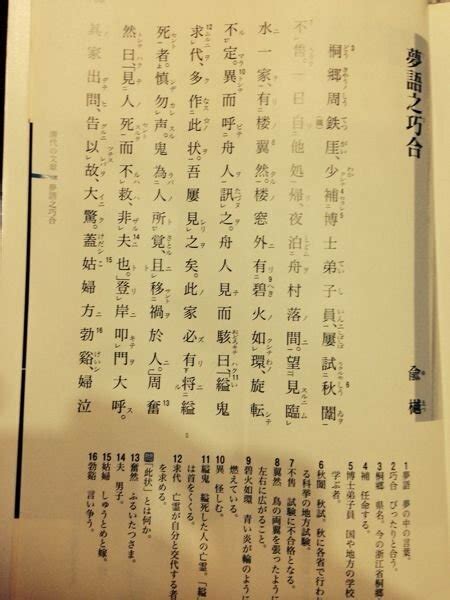 夢語之巧合
兪樾
桐郷周鉄厓、少補博士弟子員、屢試秋闈
不售。一日自他処帰、夜泊舟村落間。望見臨
水一家、有楼翼然。楼窓外有碧火如環、旋転
不定。異而呼舟人訊之。舟人見而駭曰、「縊鬼
求代、多作此状。吾屢見之矣。此家必有将縊
死者。慎勿声。鬼為人所覚、且移禍於人。」周奮
然曰、「見人死而不救、非夫也。」登岸叩門大呼。
其家出問、告以故。大驚。蓋姑婦方勃谿、婦泣
1 夢語 夢の中の言葉。
2 巧合 ぴったりと合う。
3 桐郷 県名。今の浙江省桐郷
4 補 任命する。
5 博士弟子員 国や地方の学校
学ぶ者。
6 秋闈 秋試。秋に各省で行わ
る科挙の地方試験。
7 不售 試験に不合格となる。
8 翼然 鳥の両翼を張ったように
左右に広がること。
9 碧火如環 青い炎が輪のように
燃えている。
10 異 怪しむ。
11 縊鬼 縊死した人の亡霊。「縊
は首をくくる。
12 求代 亡霊が自分と交代する者
を求める。
「此状」とは何か。
13 奮然 ふるいたつさま。
14 夫 男子。
15 姑婦 しゅうとめと嫁。
16 勃谿 言い争う。
清代の文章 夢語之巧合